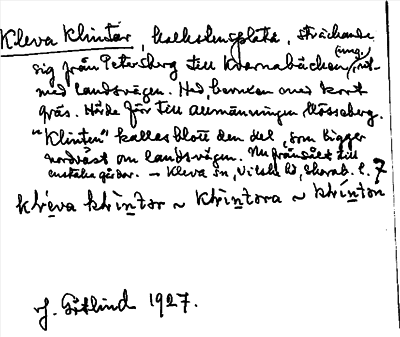 Kleva Klintar, kalkstensplatå, sträckande
sig från Petersberg till Kvarnabäcken (ung.)
med landsvägen. Hed, bevuxen med kort
gräs. Hörde förr till allmänningen Mösseberg.
"Klinten" kallas blott den del, som ligger
nordväst om landsvägen. Nu fränsålt till
enskilda gårdar. – Kleva sn, Vilske hd, Skarab. l. 7
klréva klríntar ~ klríntora ~ klríntọn
J. Götlind 1927.